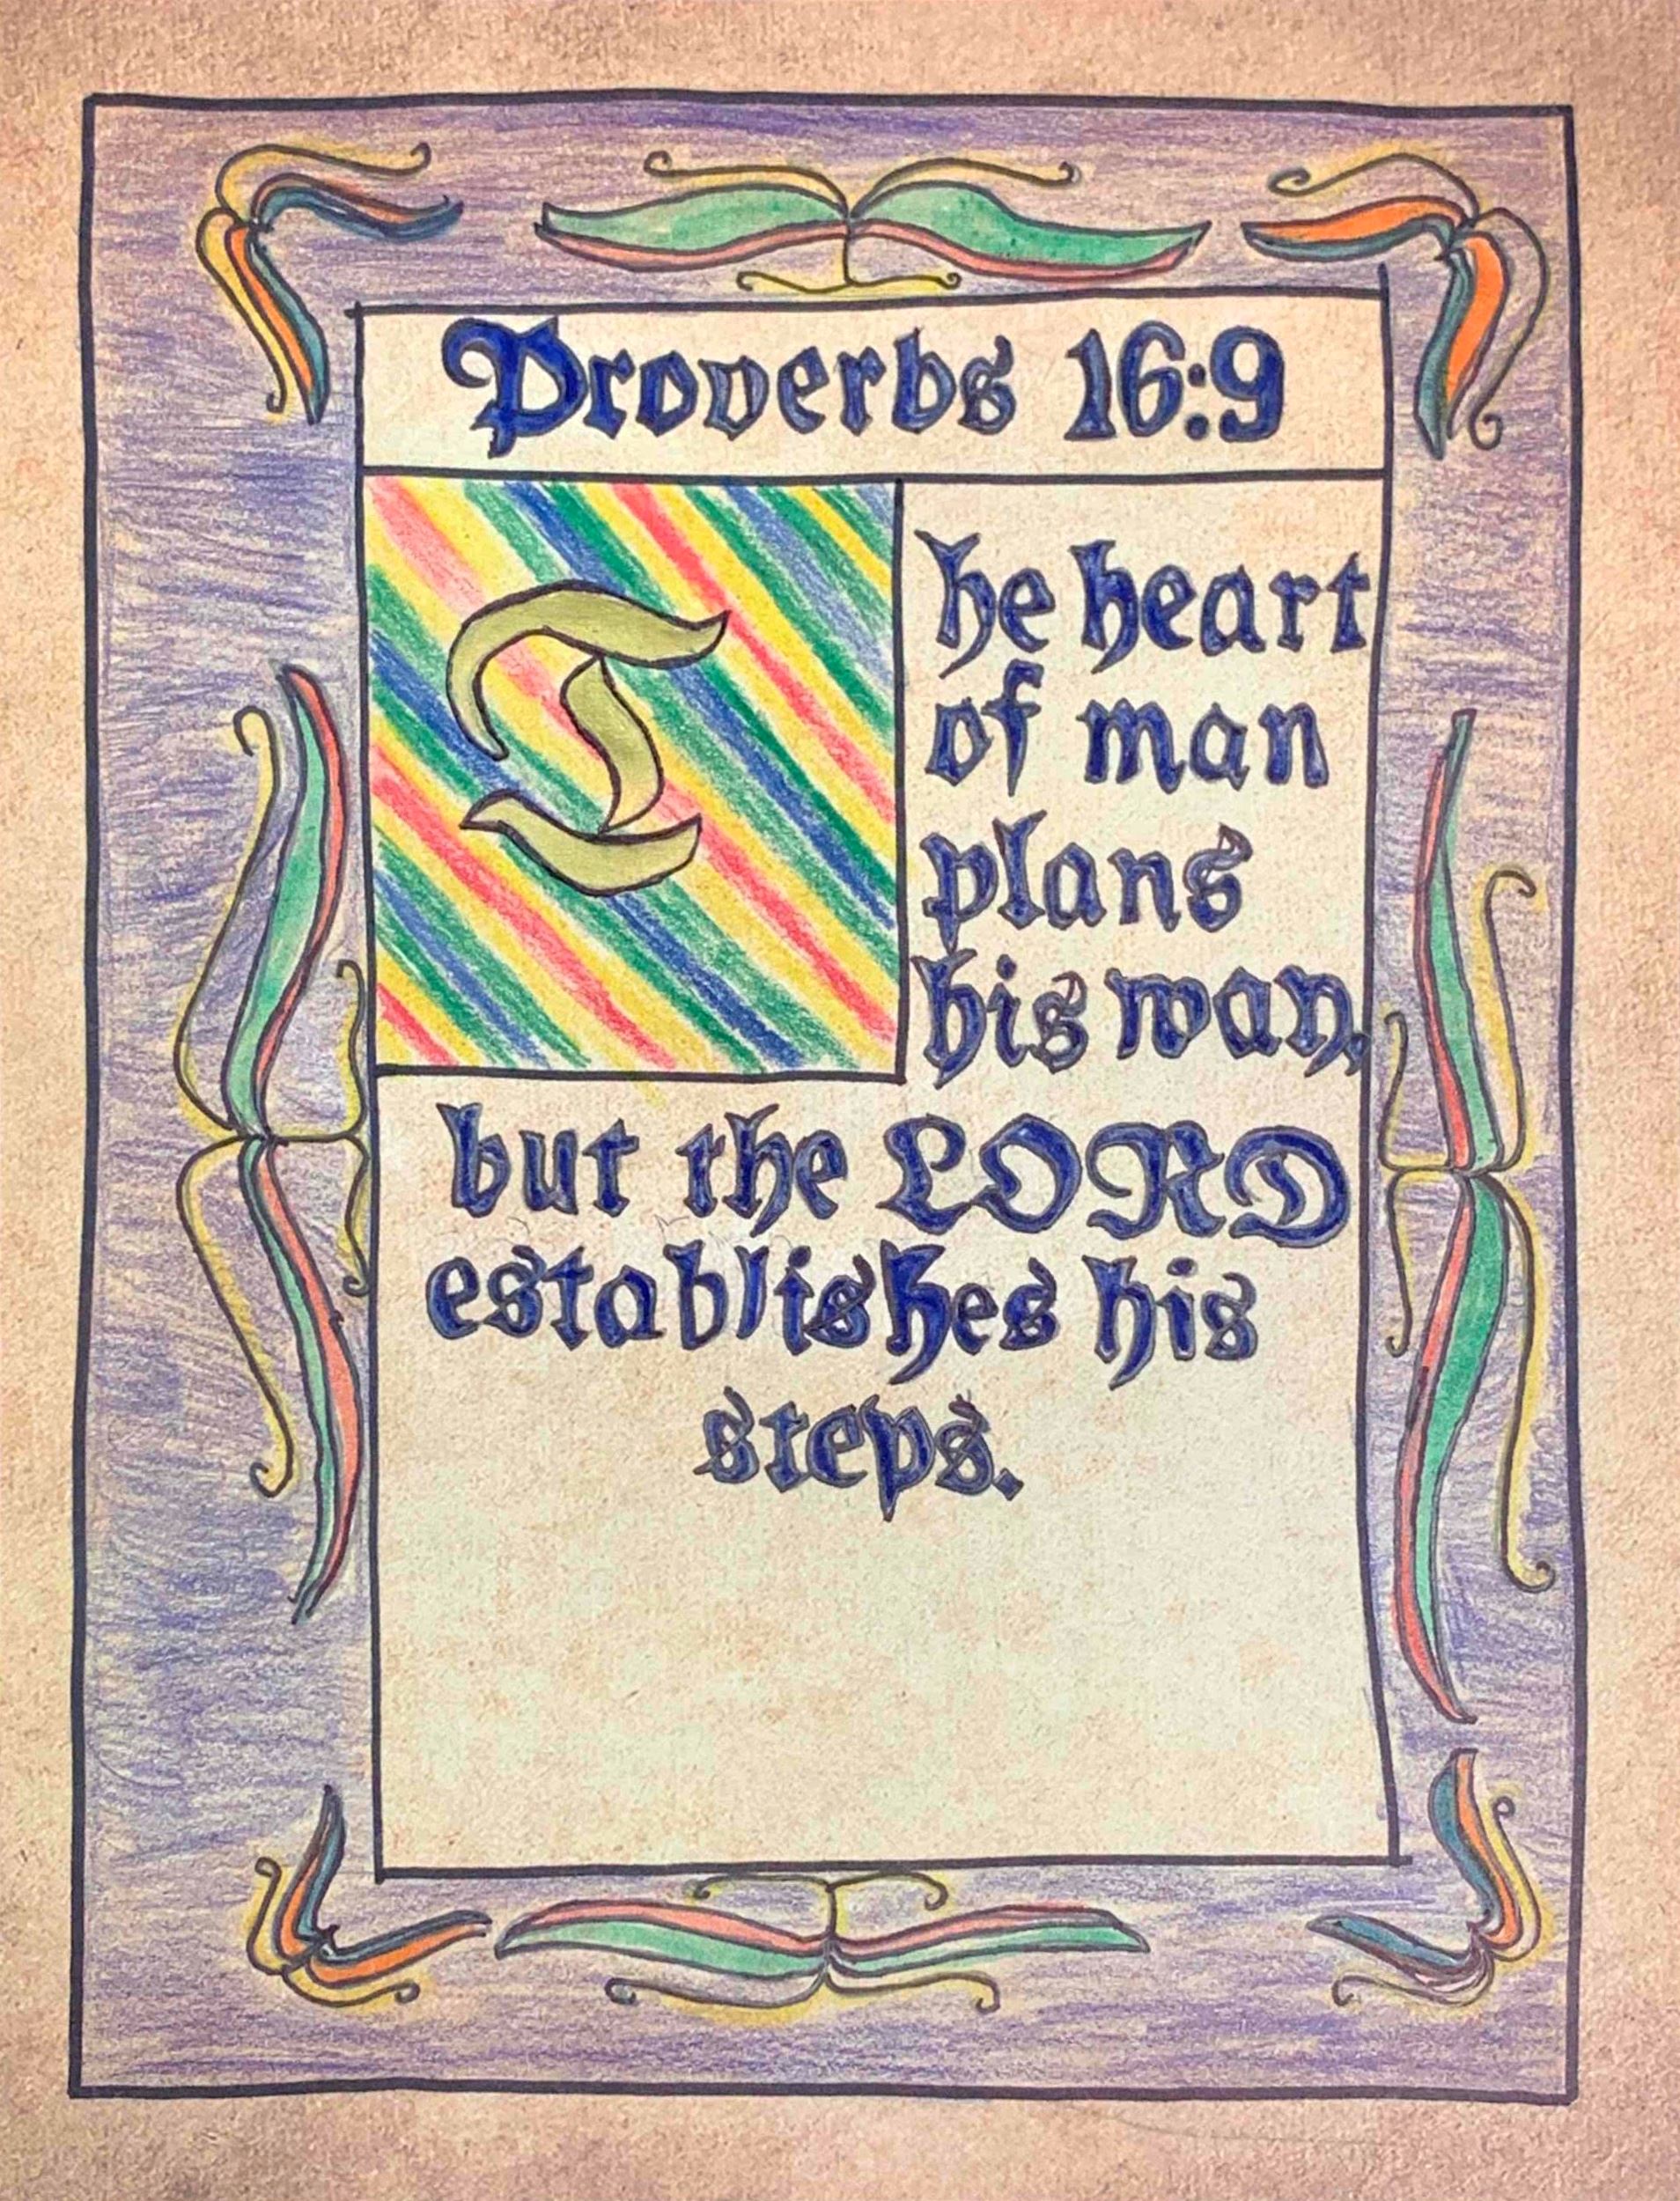 Proverbs 16:9
The heart
of man
plans
his way,
but the LORD
establishes his
steps.